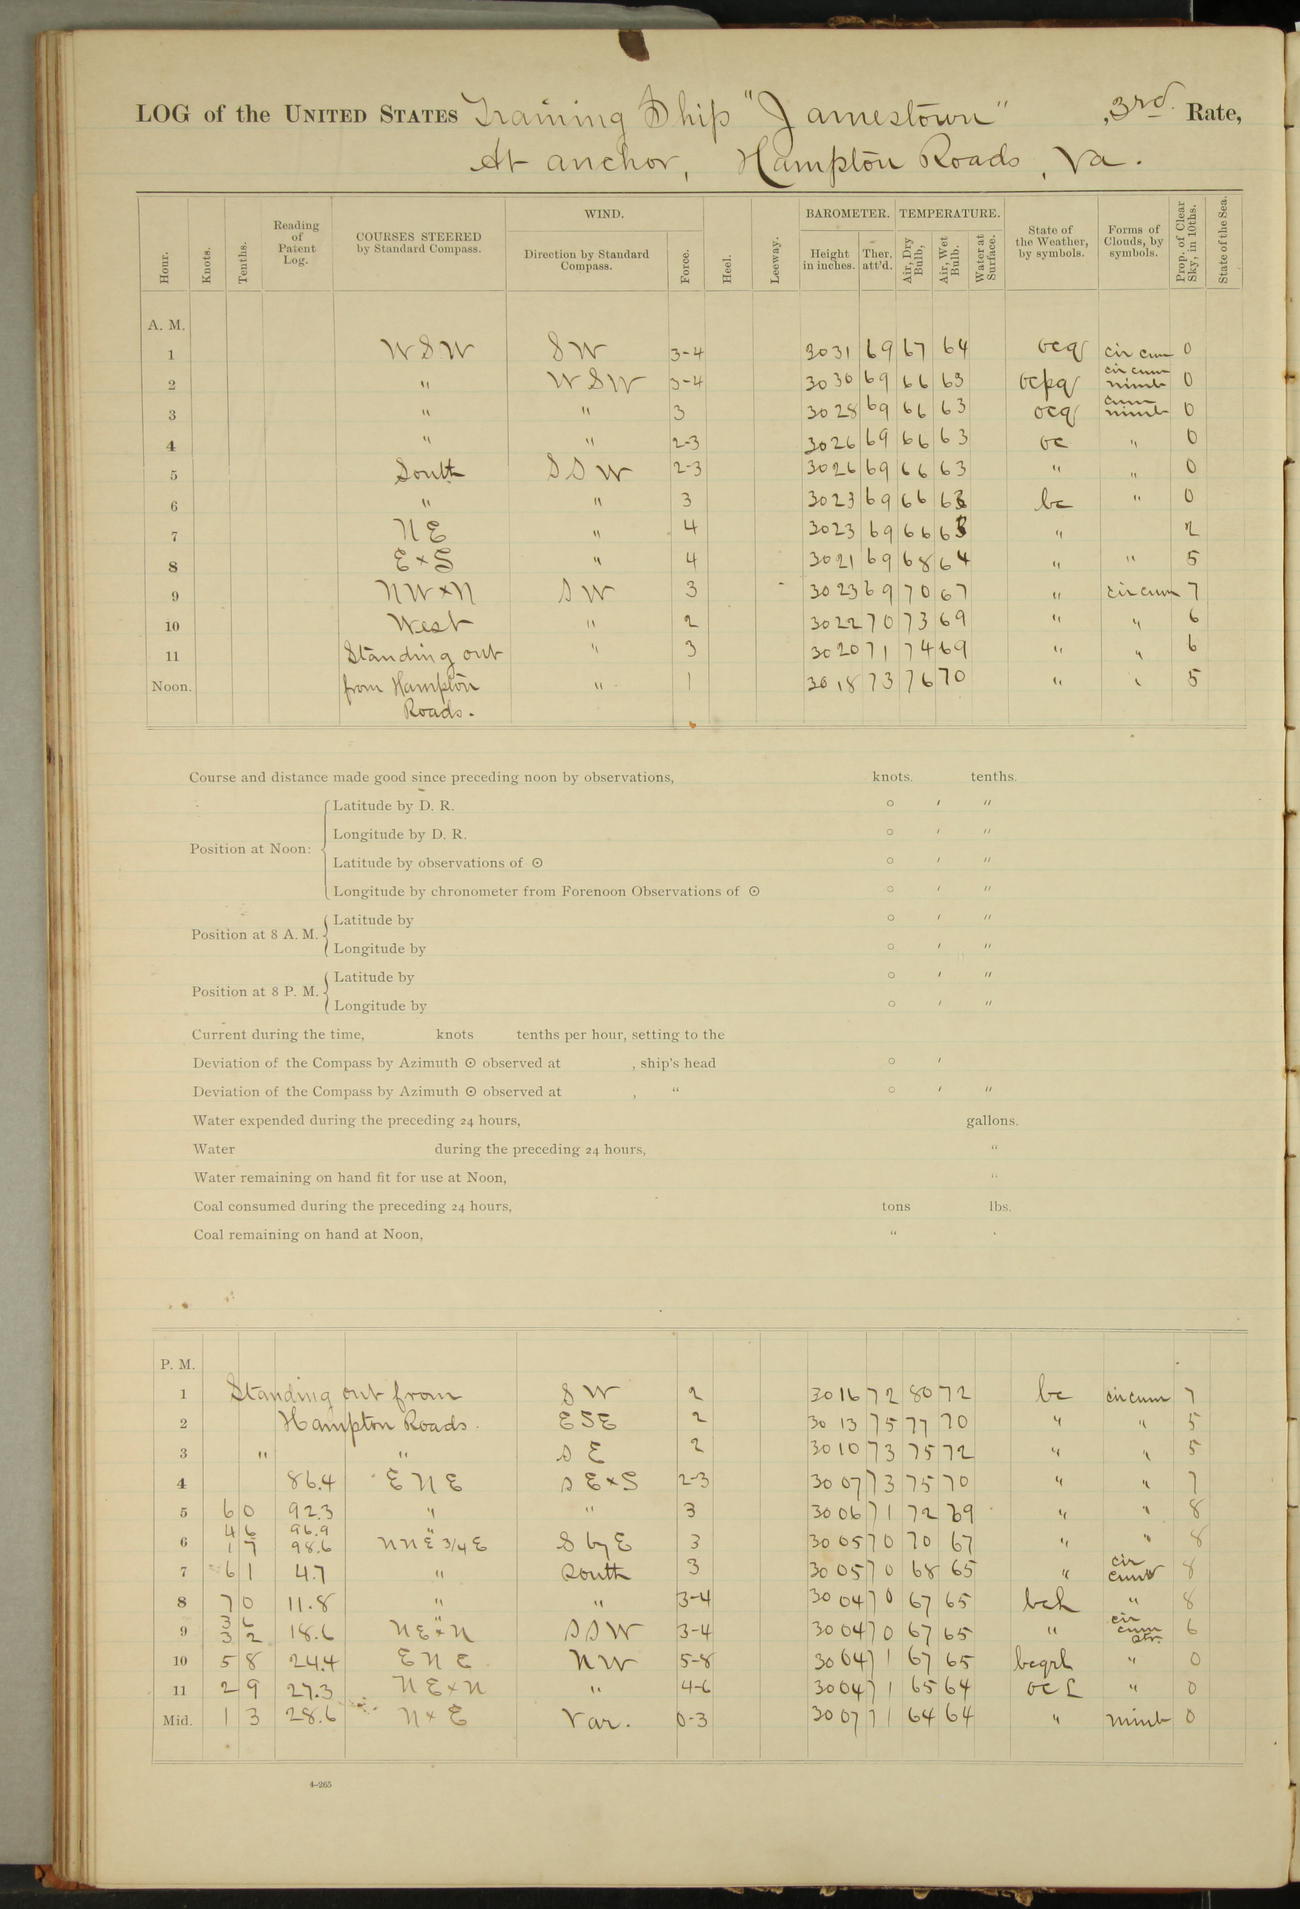 LOG of the UNITED STATES Training Ship "Jamestown" , 3rd. Rate,
At anchor, Hampton Roads, Va.
Hour. Knots. Tenths. Reading of Patent Log. COURSES STEERED by Standard Compass. WIND. Direction by Standard Compass. Force. Heel. Leeway. BAROMETER. Height in inches. Ther. att'd. TEMPERATURE. Air, Dry Bulb, Air, Wet Bulb. Water at Surface. State of the Weather, by symbols. Forms of Clouds, by symbols. Prop. of Clear Sky, in 10ths. State of the Sea.
A. M.
1 WSW SW 3-4 30 31 69 67 64 ocq cir cum 0
2 " WSW 3-4 30 30 69 66 63 ocpq cir cum nimb 0
3 " " 3 30 28 69 66 63 ocq cum nimb 0
4 " " 2-3 30 26 69 66 63 oc " 0
5 South SSW 2-3 30 26 69 66 63 " " 0
6 " " 3 30 23 69 66 63 bc " 0
7 NE " 4 30 23 69 66 63 " 2
8 E×S " 4 30 21 69 68 64 " " 5
9 NW×N SW 3 30 23 69 70 67 " cir cum 7
10 West " 2 30 22 70 73 69 " " 6
11 Standing out " 3 30 20 71 74 69 " " 6
Noon. from Hampton " 1 30 18 73 76 70 " " 5
Roads.
Course and distance made good since preceding noon by observations, knots. tenths.
Position at Noon: Latitude by D. R. ° ′ ″
Longitude by D. R. ° ′ ″
Latitude by observations of ⊙ ° ′ ″
Longitude by chronometer from Forenoon Observations of ⊙ ° ′ ″
Position at 8 A. M. Latitude by ° ′ ″
Longitude by ° ′ ″
Position at 8 P. M. Latitude by ° ′ ″
Longitude by ° ′ ″
Current during the time, knots tenths per hour, setting to the
Deviation of the Compass by Azimuth ⊙ observed at , ship's head ° ′
Deviation of the Compass by Azimuth ⊙ observed at , " ° ′ ″
Water expended during the preceding 24 hours, gallons.
Water during the preceding 24 hours, "
Water remaining on hand fit for use at Noon, "
Coal consumed during the preceding 24 hours, tons lbs.
Coal remaining on hand at Noon, "
P. M.
1 Standing out from SW 2 30 16 72 80 72 bc cir cum 7
2 Hampton Roads. ESE 2 30 13 75 77 70 " " 5
3 " " SE 2 30 10 73 75 72 " " 5
4 86.4 ENE SE×S 2-3 30 07 73 75 70 " " 7
5 6 0 92.3 " " 3 30 06 71 72 69 " " 8
4 6 96.9 "
6 1 7 98.6 NNE 3/4 E S by E 3 30 05 70 70 67 " " 8
7 6 1 4.7 " South 3 30 05 70 68 65 " cir cum 8
8 7 0 11.8 " " 3-4 30 04 70 67 65 bch " 8
3 6 "
9 3 2 18.6 NE×N SSW 3-4 30 04 70 67 65 " cir cum str. 6
10 5 8 24.4 ENE NW 5-8 30 04 71 67 65 bcqrl " 0
11 2 9 27.3 NE×N " 4-6 30 04 71 65 64 oc L " 0
Mid. 1 3 28.6 N×E Var. 0-3 30 07 71 64 64 " nimb 0
4-265